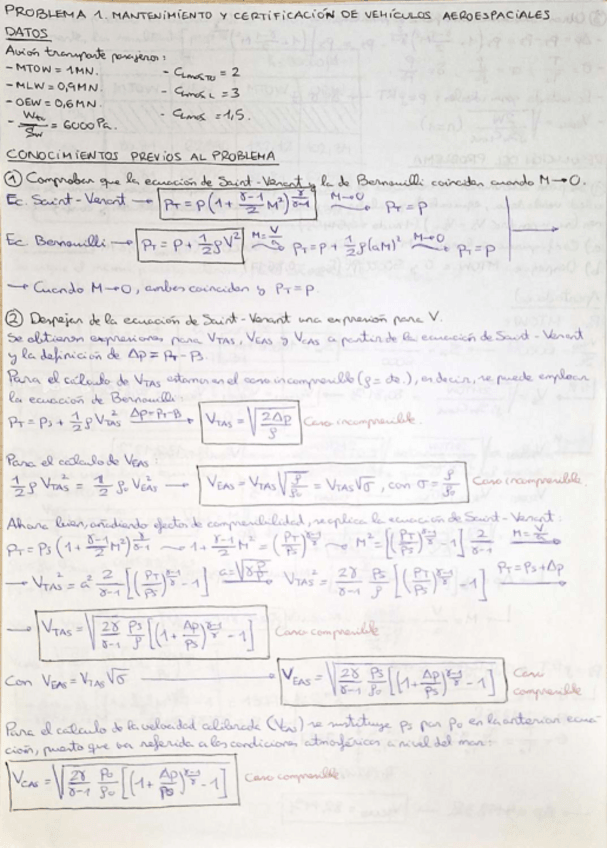 PROBLEMA 1. MANTENIMIENTO Y CERTIFICACIÓN DE VEHÍCULOS AEROESPACIALES
DATOS
Avión transporte pasajeros:
- MTOW = 1MN. - CLmáxTO = 2
- MLW = 0,9MN. - CLmáxL = 3
- OEW = 0,6MN. - CLmáx = 1,5.
- Wto/Sw = 6000 Pa.
CONOCIMIENTOS PREVIOS AL PROBLEMA
① Comprobar que la ecuación de Saint-Venant y la de Bernouilli coinciden cuando M→0.
Ec. Saint-Venant → PT = P(1 + (γ-1)/2 M²)^(γ/(γ-1)) M→0 PT = P
Ec Bernouilli → PT = P + 1/2 ρV² M=V/a PT = P + 1/2 ρ(aM)² M→0 PT = P
→ Cuando M→0, ambas coinciden y PT = P.
② Despejar de la ecuación de Saint-Venant una expresión para V.
Se obtienen expresiones para VTAS, VEAS y VCAS a partir de la ecuación de Saint-Venant
y la definición de Δp ≡ PT - PS.
Para el cálculo de VTAS estamos en el caso incompresible (ρ = cte.), es decir, se puede emplear
la ecuación de Bernouilli:
PT = PS + 1/2 ρ VTAS² Δp=PT-PS VTAS = √(2Δp/ρ) Caso incompresible.
Para el cálculo de VEAS:
1/2 ρ VTAS² = 1/2 ρ0 VEAS² → VEAS = VTAS √(ρ/ρ0) = VTAS √σ, con σ = ρ/ρ0 Caso incompresible.
Ahora bien, añadiendo efectos de compresibilidad, se aplica la ecuación de Saint-Venant:
PT = PS(1 + (γ-1)/2 M²)^(γ/(γ-1)) → 1 + (γ-1)/2 M² = (PT/PS)^((γ-1)/γ) → M² = [(PT/PS)^((γ-1)/γ) - 1] 2/(γ-1) M=V/a
→ VTAS² = a² 2/(γ-1) [(PT/PS)^((γ-1)/γ) - 1] a=√(γ P/ρ) VTAS² = 2γ/(γ-1) PS/ρ [(PT/PS)^((γ-1)/γ) - 1] PT=PS+Δp
→ VTAS = √(2γ/(γ-1) PS/ρ [(1 + Δp/PS)^((γ-1)/γ) - 1]) Caso compresible
Con VEAS = VTAS √σ → VEAS = √(2γ/(γ-1) PS/ρ0 [(1 + Δp/PS)^((γ-1)/γ) - 1]) Caso
compresible
Para el cálculo de la velocidad calibrada (VCAS) se sustituye PS por P0 en la anterior ecua-
ción, puesto que va referida a las condiciones atmosféricas a nivel del mar:
VCAS = √(2γ/(γ-1) P0/ρ0 [(1 + Δp/P0)^((γ-1)/γ) - 1]) Caso compresible.